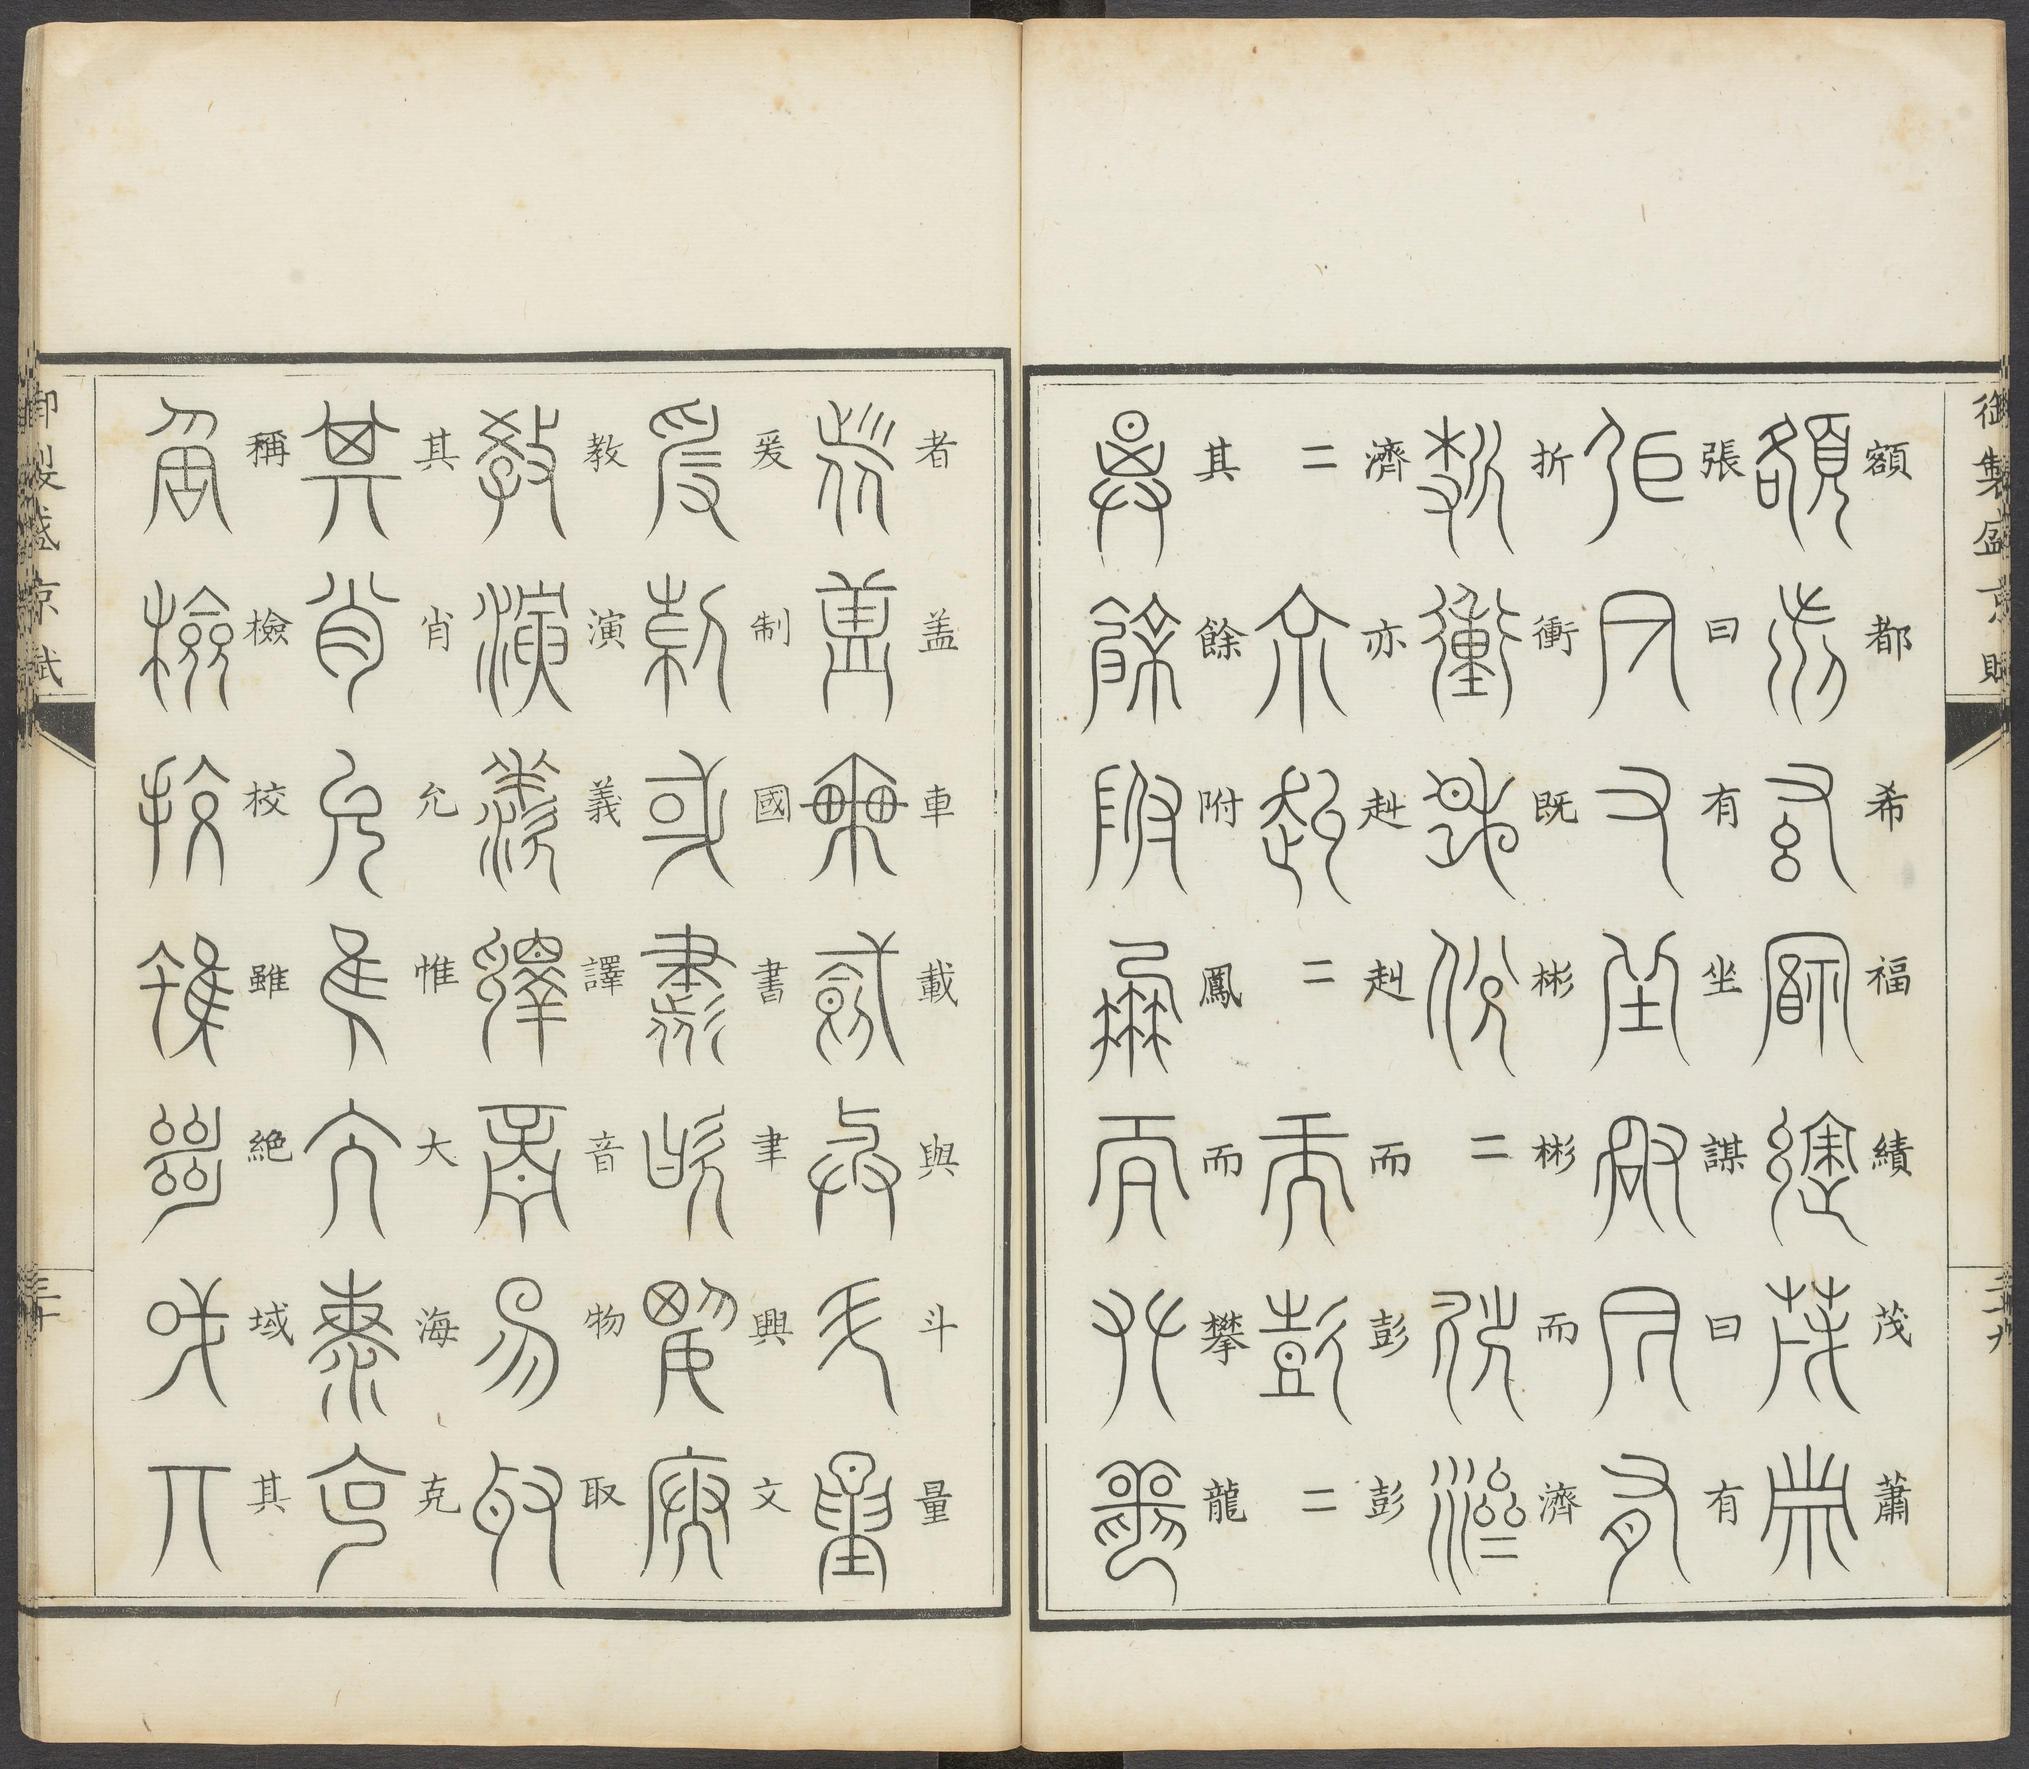 御製盛京賦
二十九
額都希福績茂蕭
張曰有坐謀曰有
折衝既彬彬二而濟
濟二亦赳赳二而彭彭二
其餘附鳳而攀龍
者盖車載與斗量
爰制國書聿興文
教演義譯音物取
其肖允惟大海克
稱檢校雖絶域其
御製盛京賦
三十